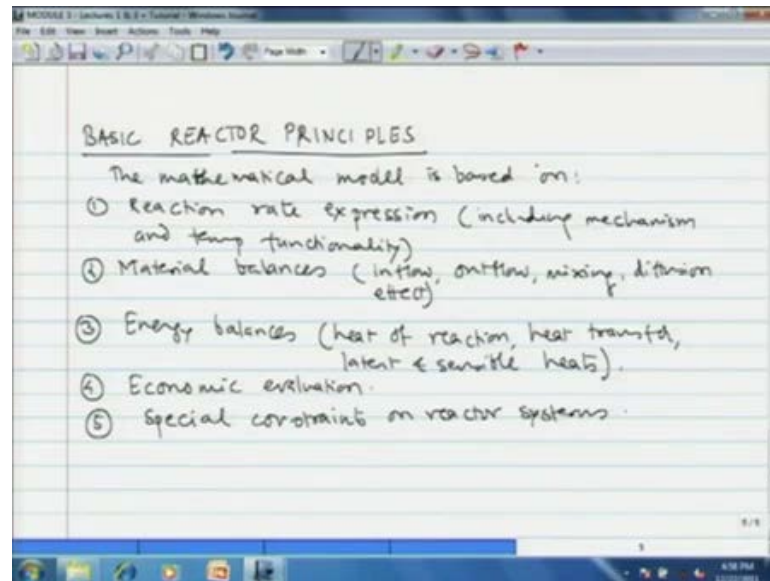 MODULE 3 - Lectures 1 & 2 + Tutorial - Windows Journal
File Edit View Insert Actions Tools Help
Page Width
BASIC REACTOR PRINCIPLES
The mathematical model is based on:
① Reaction rate expression (including mechanism
and temp functionality)
② Material balances (inflow, outflow, mixing, diffusion
effect)
③ Energy balances (heat of reaction, heat transfer,
latent & sensible heats).
④ Economic evaluation.
⑤ Special constraint on reactor systems.
4:56 PM